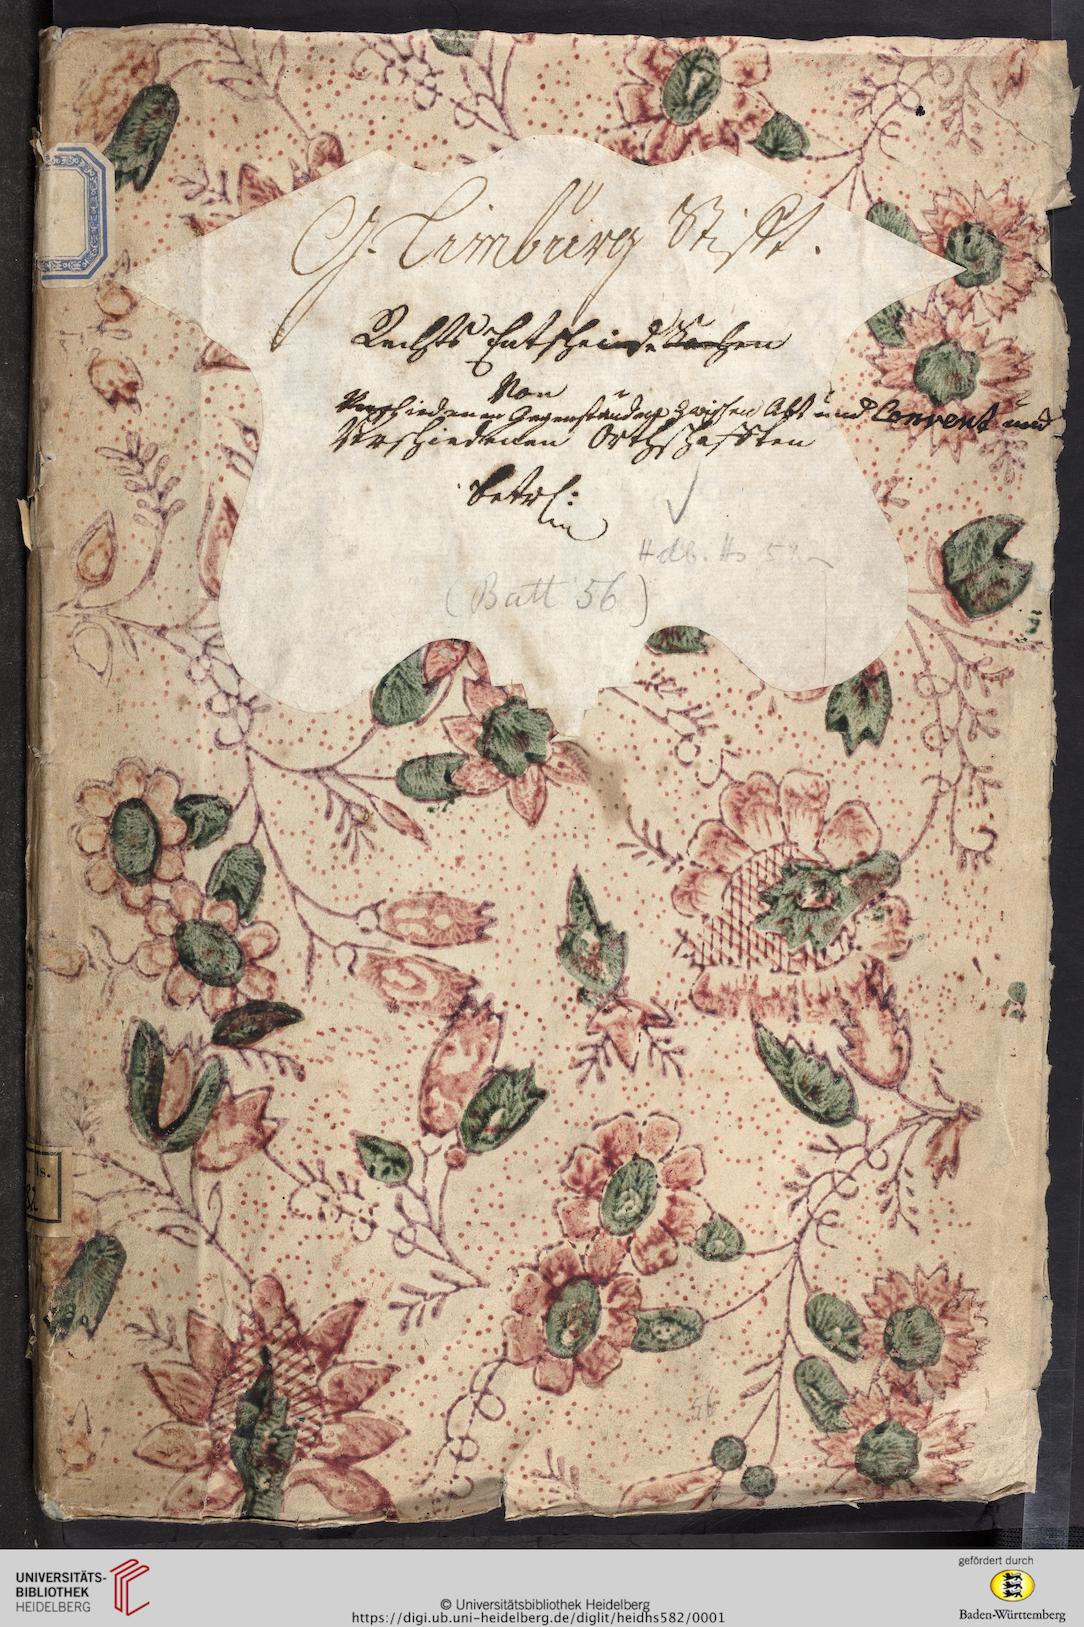 G. Limbürg Stifft.
Rechts Entscheidt Sachen
Von
Verschiedenen Gegenständen zwischen Abt und Convent und
Verschiedenen Orthschafften
betrl:
Hdb. Hs 582
(Batt 56)
Hs.
82
56
UNIVERSITÄTS-
BIBLIOTHEK
HEIDELBERG
© Universitätsbibliothek Heidelberg
https://digi.ub.uni-heidelberg.de/diglit/heidhs582/0001
gefördert durch
Baden-Württemberg